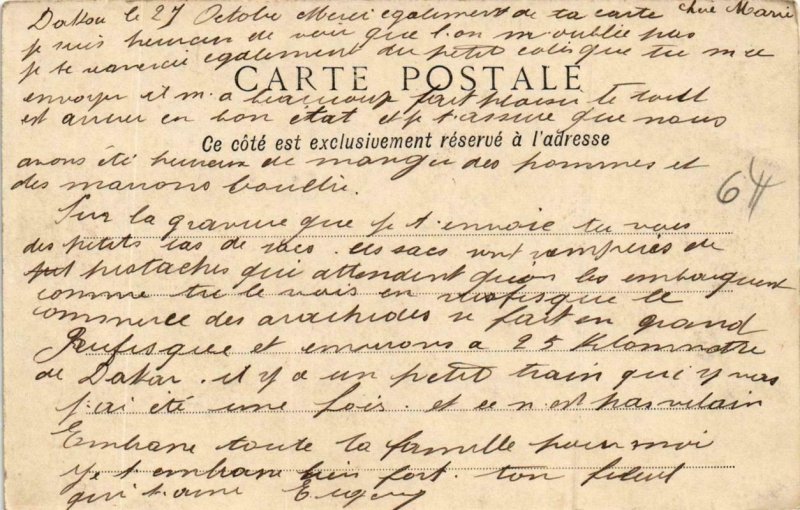 Dakar le 27 Octobre Merci egalement de ta carte chere Marie
je suis heureux de voir que l'on m'oublie pas
je te remercie egalement du petit colis que tu m a
CARTE POSTALE
envoyer il m'a beaucoup fait plaisir le tout
est arrivé en bon état et je t'assure que nous
Ce côté est exclusivement réservé à l'adresse
avons été heureux de manger des pommes et
des marrons boullie.
64
Sur la gravure que je t'envoie tu vois
des petits tas de sacs. ces sacs sont remperés de
pistaches qui attendent qu'on les embarquent
comme tu le vois en Rufisque le
commerce des arachides se fait en grand
Rufisque et environs a 25 Kilommètre
de Dakar. il y a un petit train qui y vas
j'ai été une fois. et ce n est pas vilain
Embrasse toute la famille pour moi
je t embrasse bien fort. ton filleul
qui t'aime Eugene